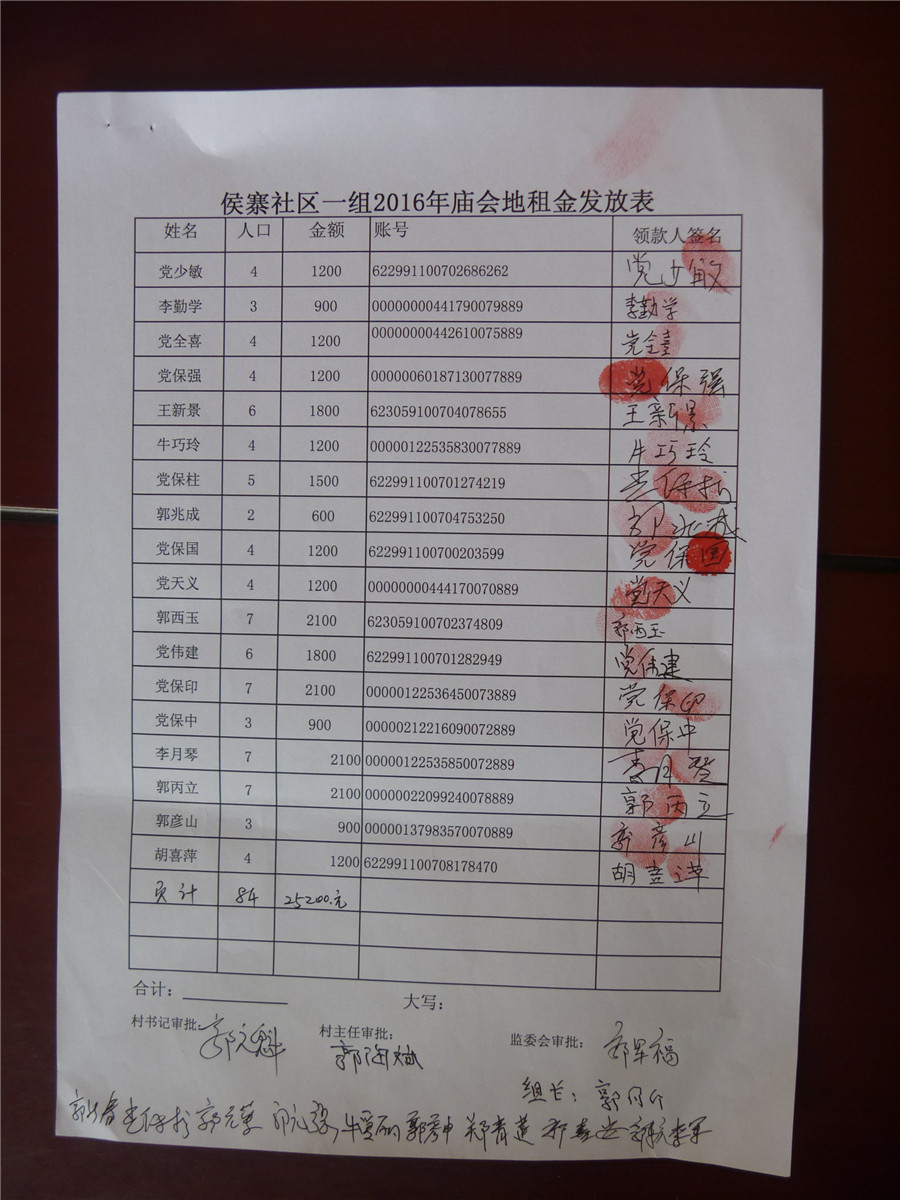 侯寨社区一组2016年庙会地租金发放表
姓名 人口 金额 账号 领款人签名
党少敏 4 1200 622991100702686262 党少敏
李勤学 3 900 00000000441790079889 李勤学
党全喜 4 1200 00000000442610075889 党全喜
党保强 4 1200 00000060187130077889 党保强
王新景 6 1800 623059100704078655 王新景
牛巧玲 4 1200 00000122535830077889 牛巧玲
党保柱 5 1500 622991100701274219 党保柱
郭兆成 2 600 622991100704753250 郭兆成
党保国 4 1200 622991100700203599 党保国
党天义 4 1200 00000000444170070889 党天义
郭西玉 7 2100 623059100702374809 郭西玉
党伟建 6 1800 622991100701282949 党伟建
党保印 7 2100 00000122536450073889 党保印
党保中 3 900 00000212216090072889 党保中
李月琴 7 2100 00000122535850072889 李月琴
郭丙立 7 2100 00000022099240078889 郭丙立
郭彦山 3 900 00000137983570070889 郭彦山
胡喜萍 4 1200 622991100708178470 胡喜萍
页计 84 25200.元
合计： 大写：
村书记审批： 郭元魁 村主任审批： 监委会审批：
组长：